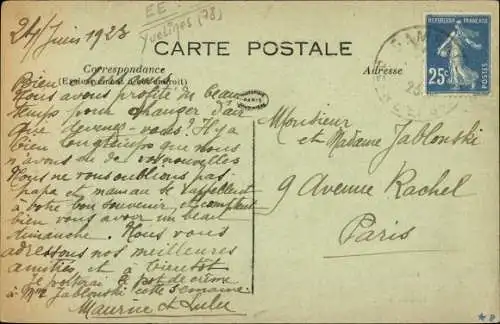 24 Juin 1923
EE.
Yvelines (78)
CARTE POSTALE
Correspondance
Adresse
REPUBLIQUE FRANÇAISE
25c
POSTES
PARIS
Bien
Nous avons profité du beau
temps pour changer d'air
Que devenez-vous? Il y a
bien longtemps que nous
n'avons eu de vos nouvelles
Nous ne vous oublions pas
papa et maman se rappellent
à votre bon souvenir, et comptent
bien vous avoir un beau
dimanche. Nous vous
adressons nos meilleures
amitiés et à bientôt
Je porterai le pot de crème
à Mme Jablonski cette semaine
Maurice et Lulu
Monsieur
et Madame Jablonski
9 Avenue Rachel
Paris